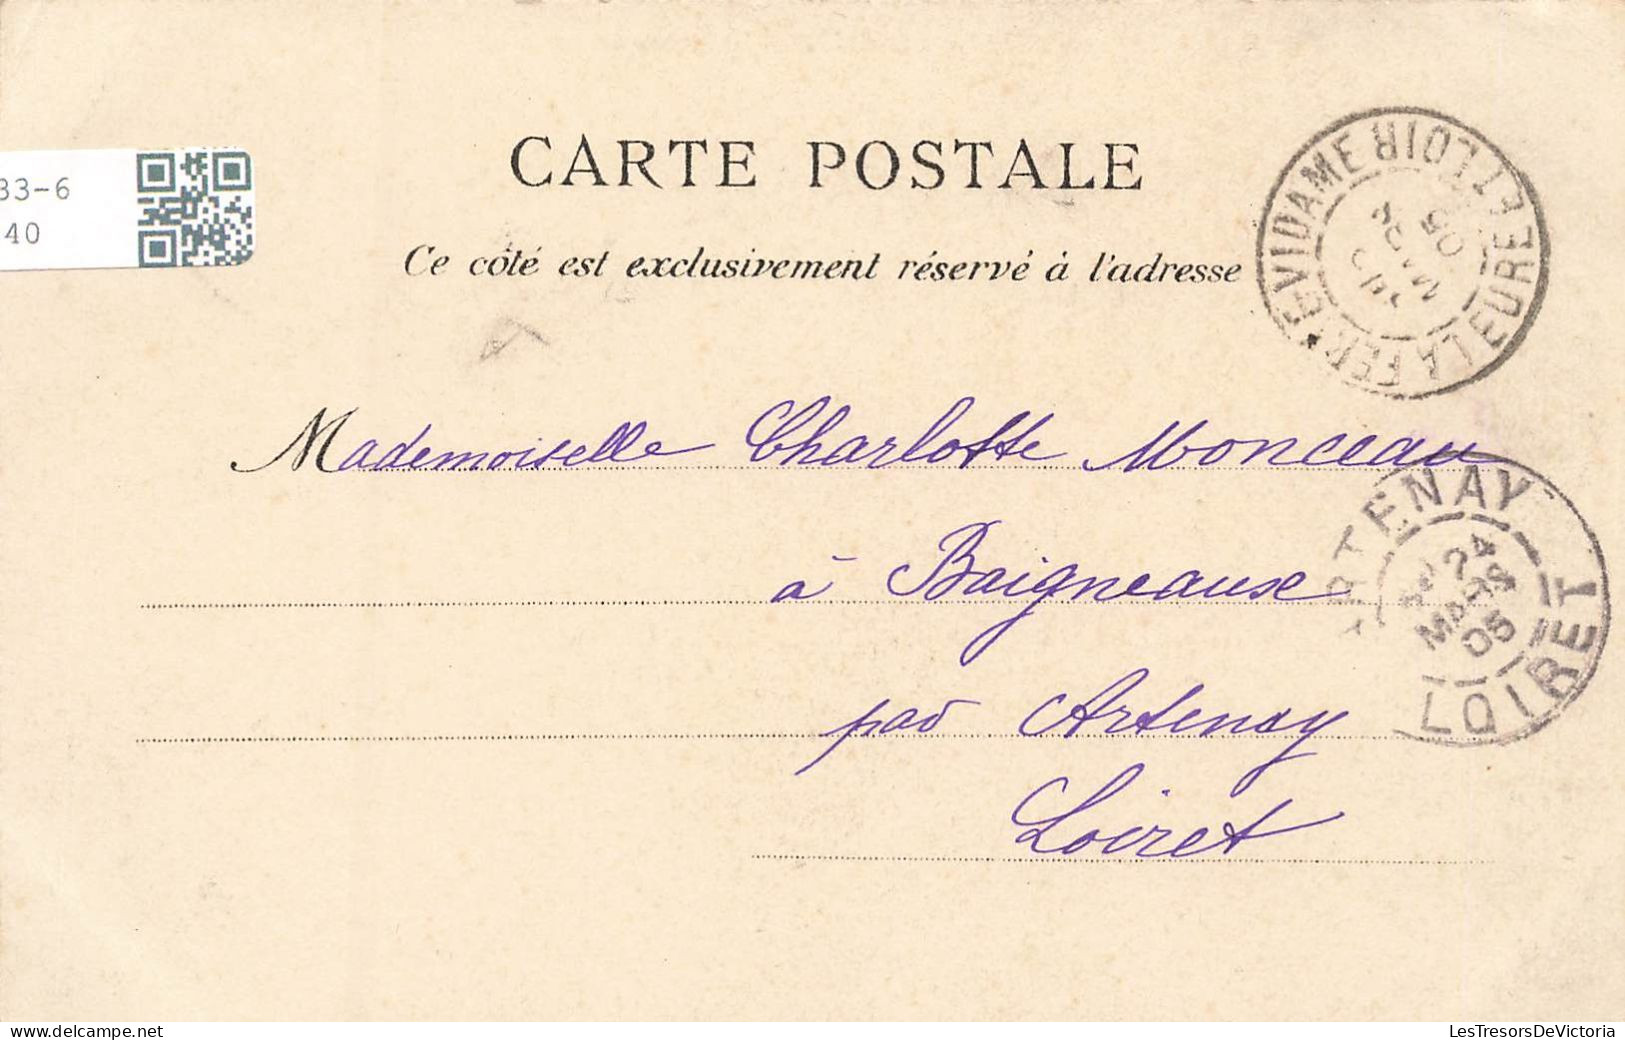 33-6
40
CARTE POSTALE
Ce côté est exclusivement réservé à l'adresse
LA FERTE-VIDAME EURE-ET-LOIR
05
Mademoiselle Charlotte Monceau
à Baigneause
par Artenay
Loiret
ARTENAY
24
MARS
05
LOIRET
delcampe.net
LesTresorsDeVictoria